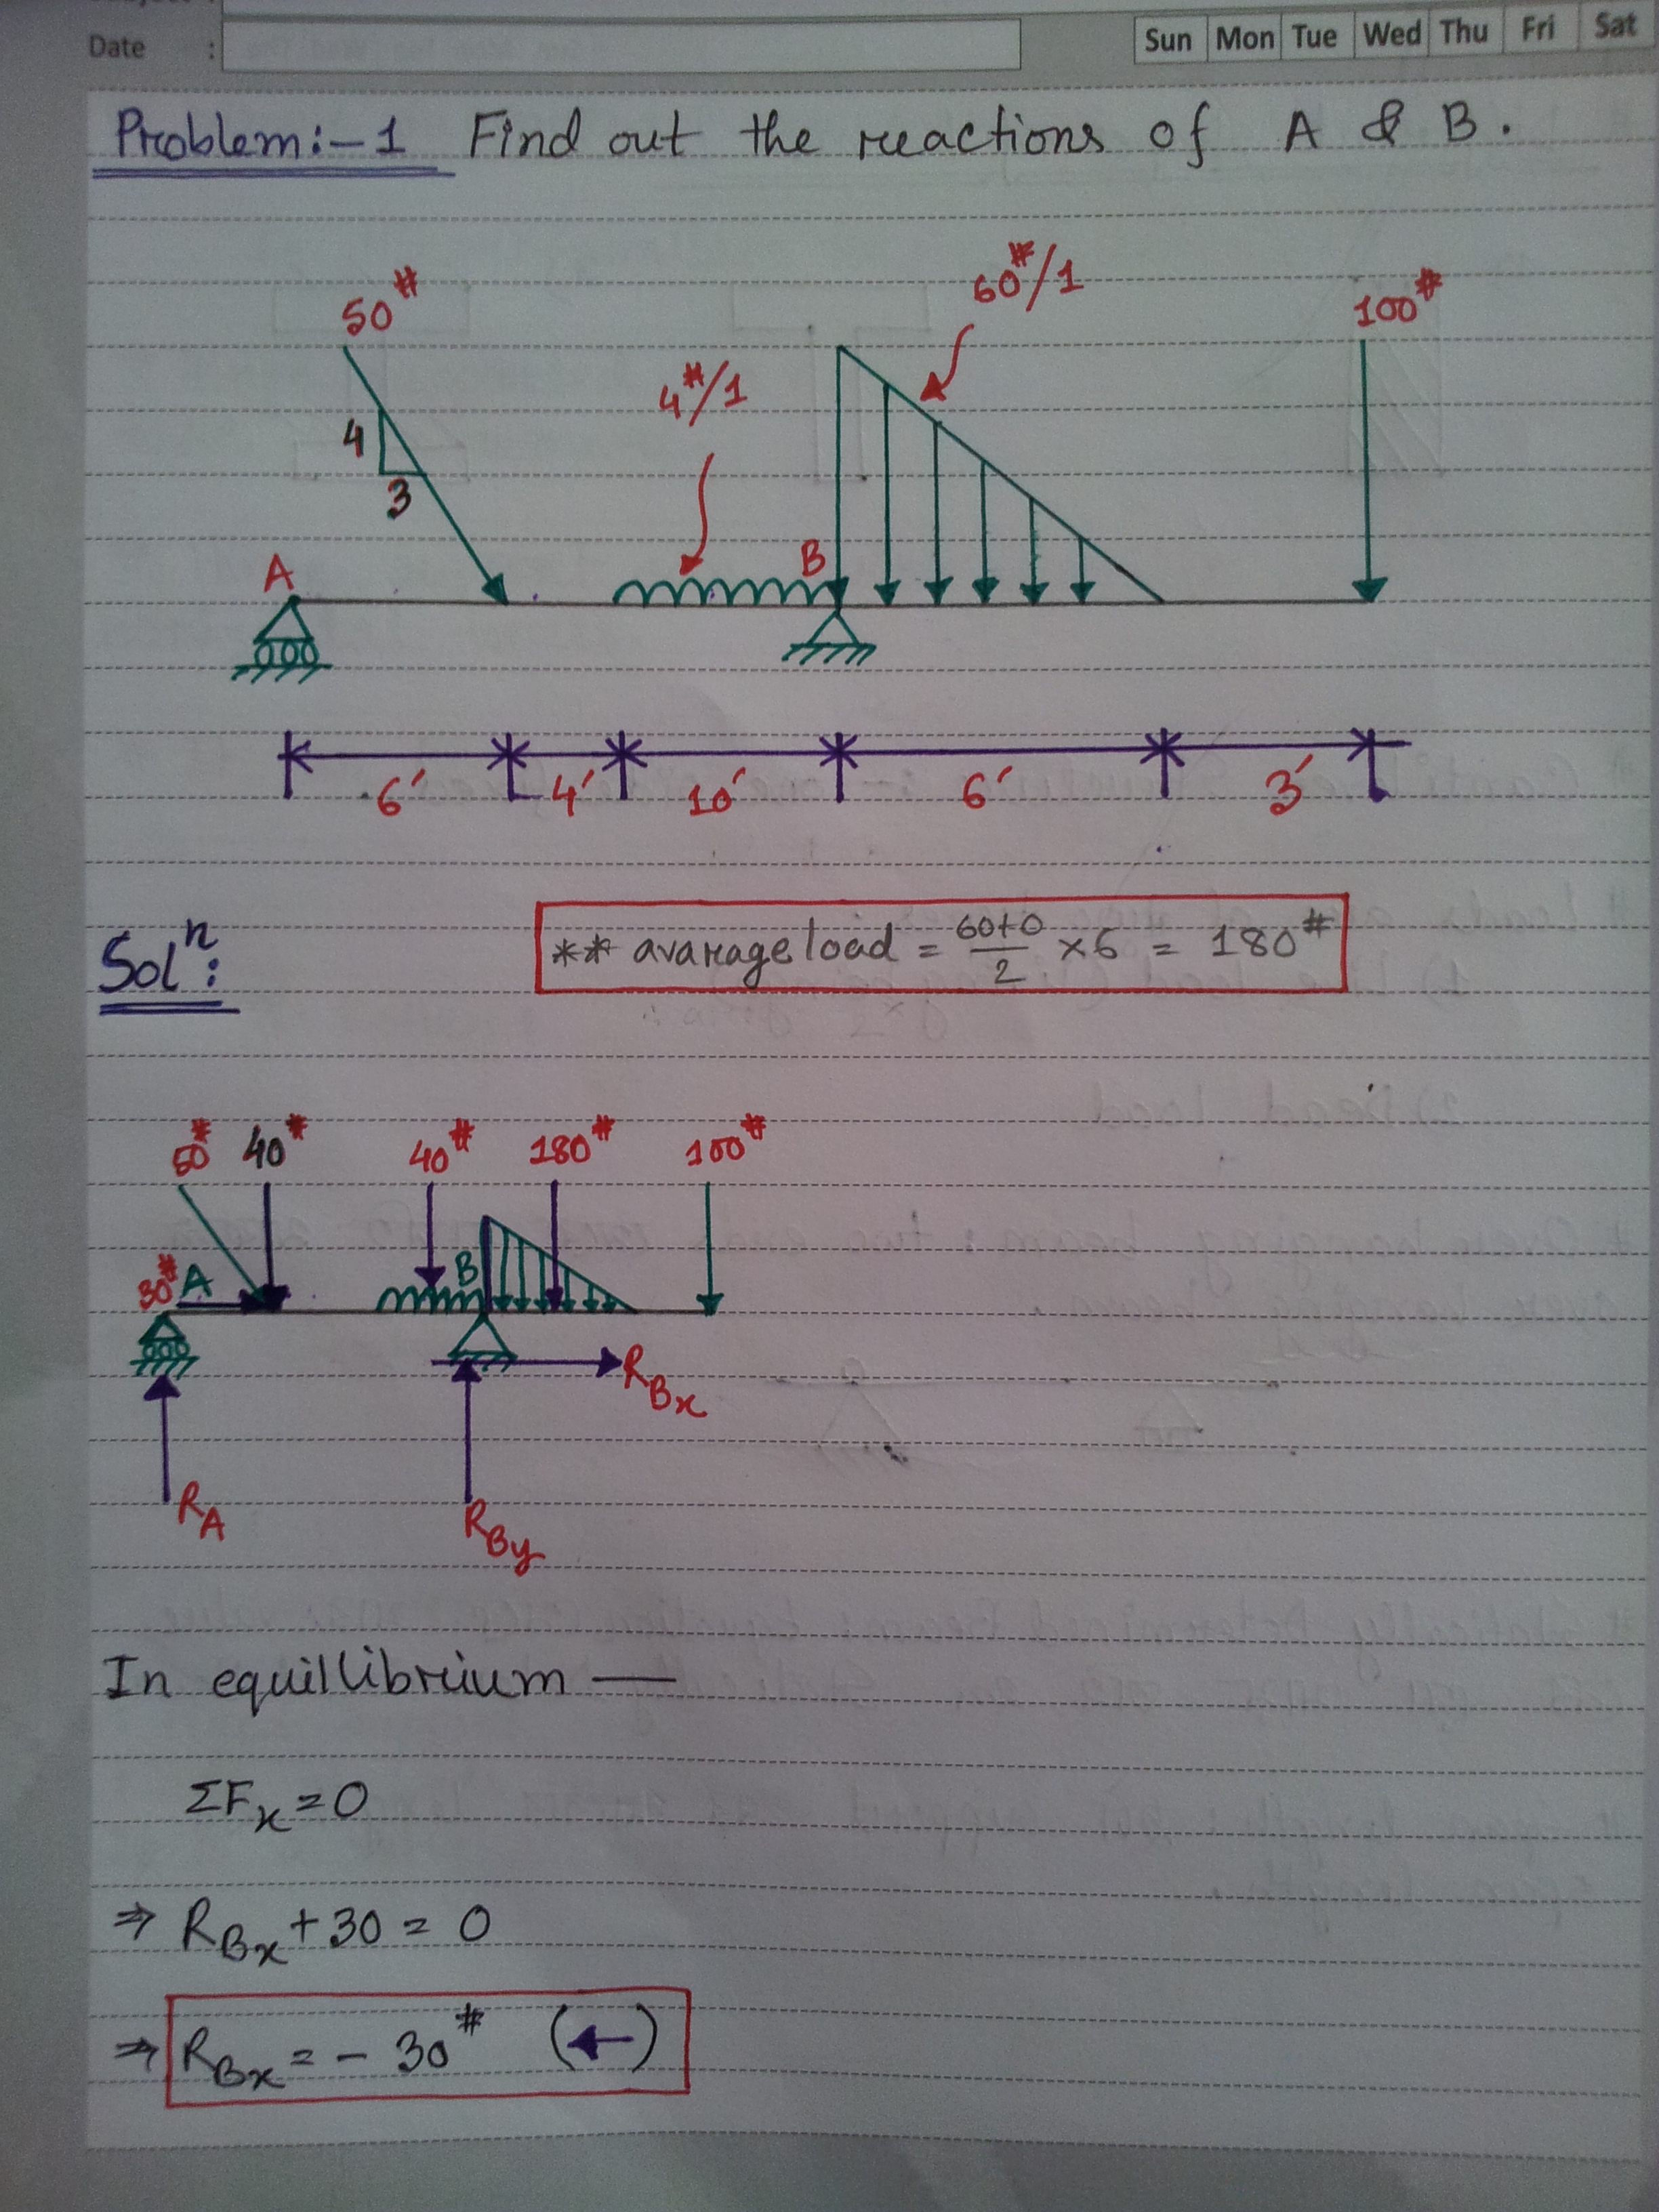 Date :
Sun Mon Tue Wed Thu Fri Sat
Problem:-1 Find out the reactions of A & B.
50# 60#/1 100#
4#/1
4
3
A B
6' 4' 10' 6' 3'
Solⁿ: ** avarage load = (60+0)/2 ×6 = 180#
50# 40# 40# 180# 100#
30# A B
R_Bx
R_A R_By
In equillibrium —
ΣFₓ = 0
⇒ R_Bx + 30 = 0
⇒ R_Bx = - 30# (←)